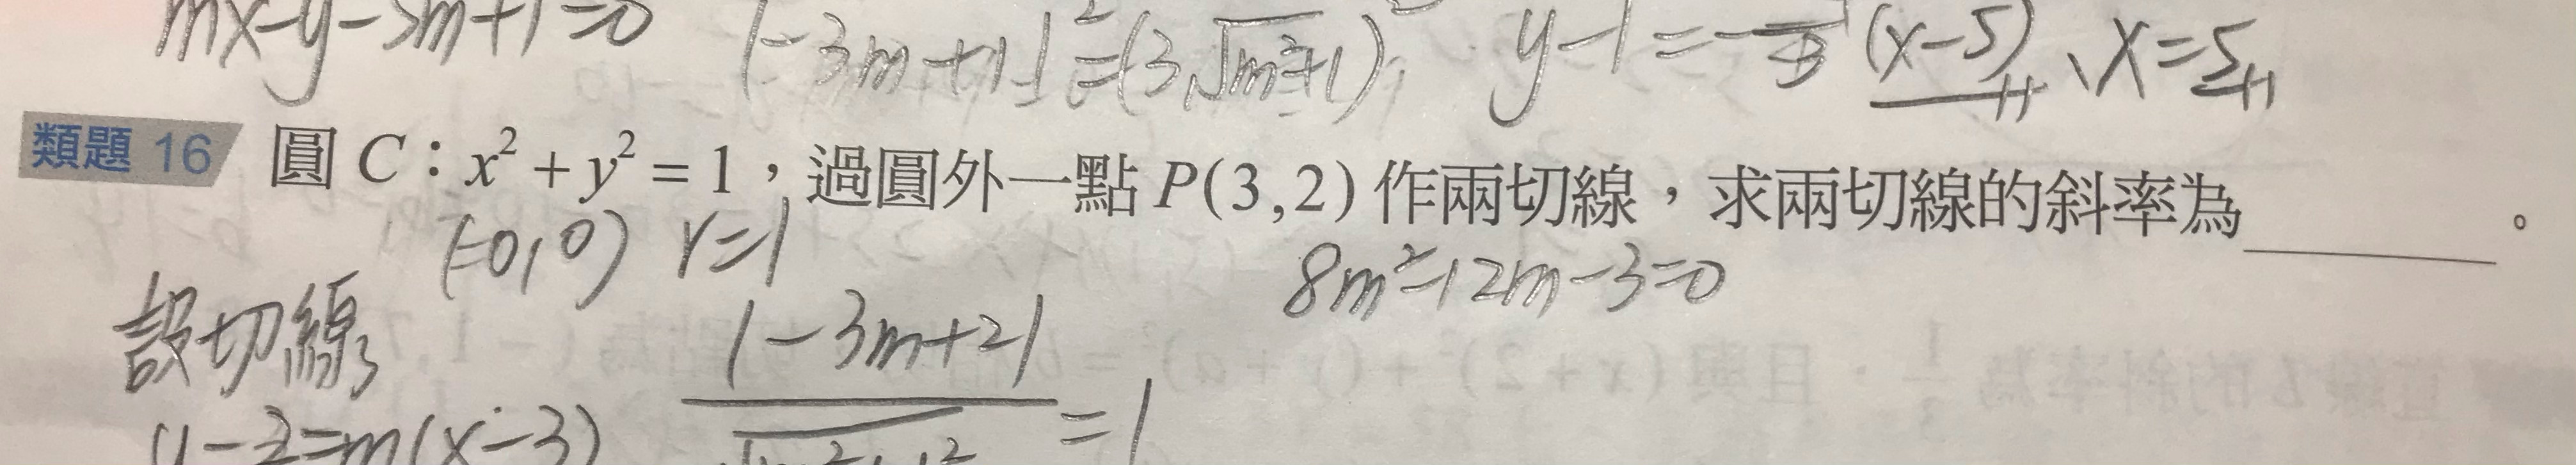 mx-y-5m+1=0 |-3m+1|²=(3√m²+1)² y-1=-(x-5)、x=5
類題 16 圓 C:x²+y²=1,過圓外一點 P(3,2) 作兩切線,求兩切線的斜率為________。
(-0,0) r=1 8m²-12m-3=0
設切線 |-3m+2|
y-2=m(x-3) =1